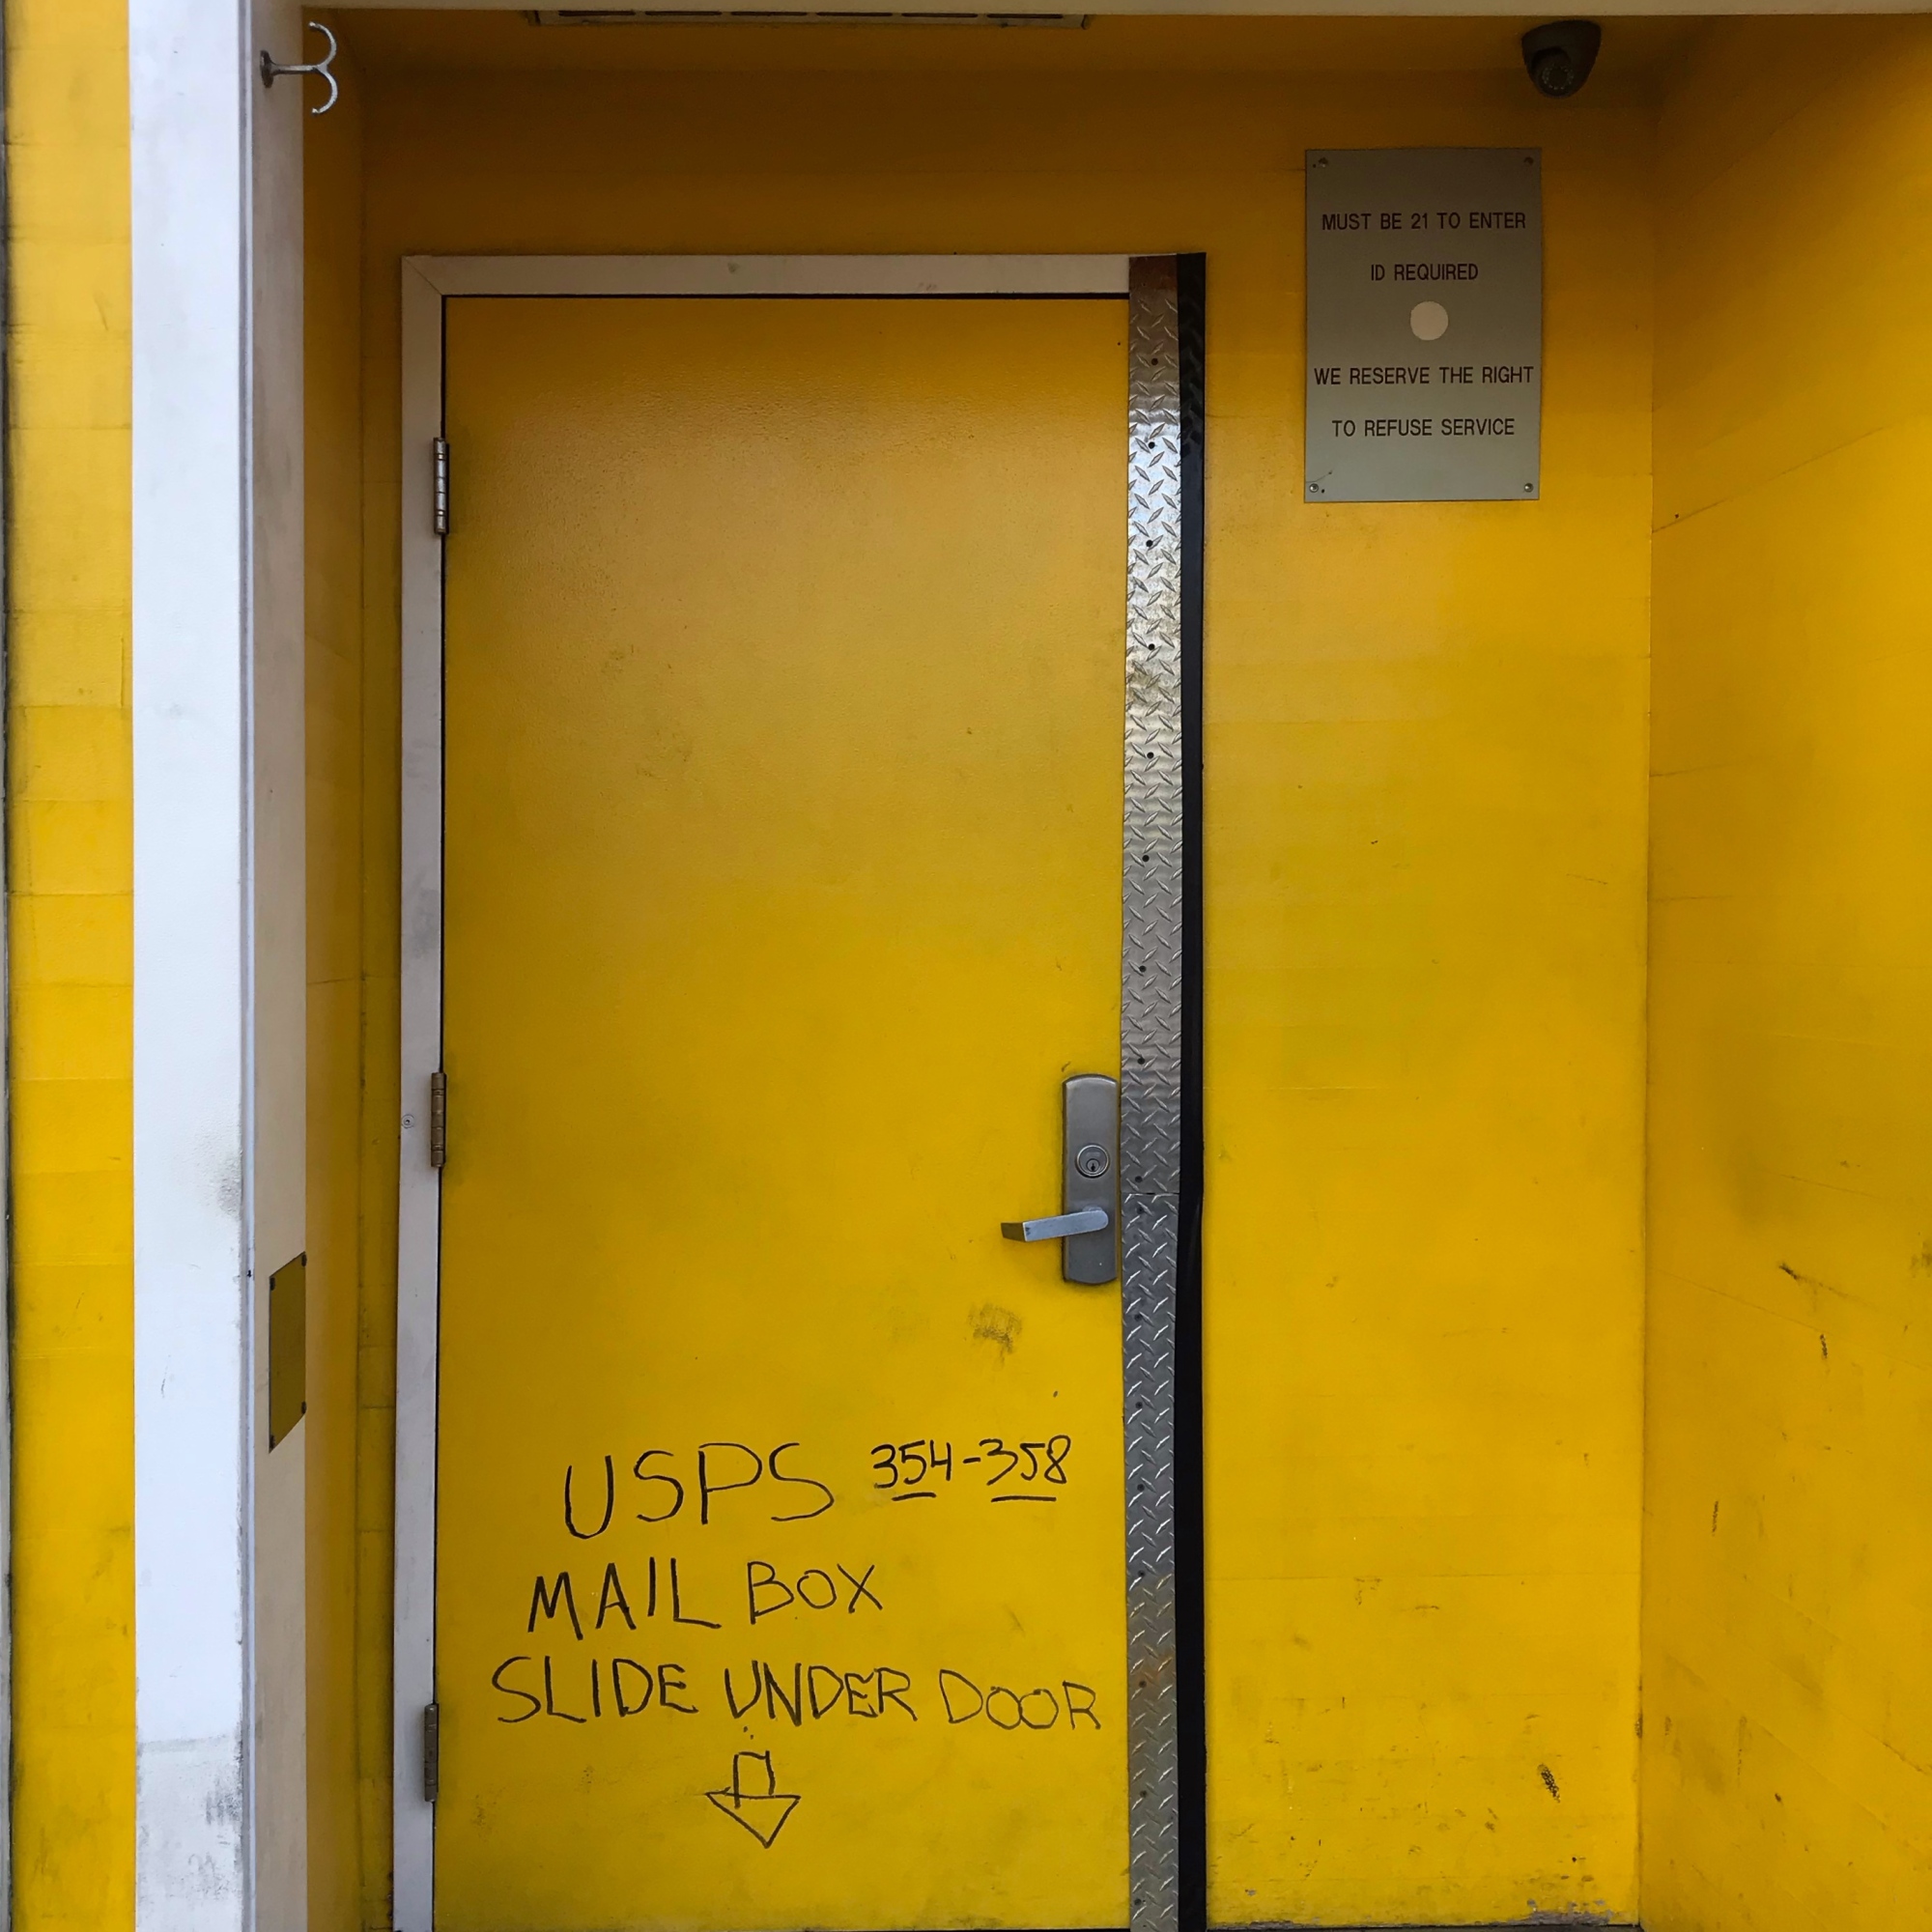 MUST BE 21 TO ENTER
ID REQUIRED
WE RESERVE THE RIGHT
TO REFUSE SERVICE
USPS 354-358
MAIL BOX
SLIDE UNDER DOOR